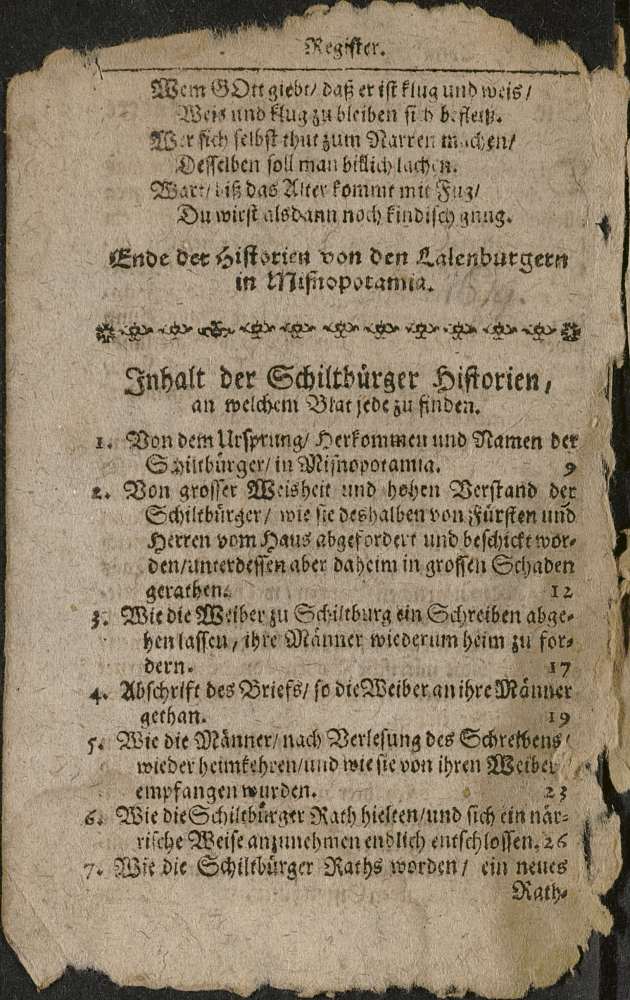 Register.
Wem GOtt giebt/ daß er ist klug und weis/
Weis und klug zu bleiben sich befleiß.
Wer sich selbst thut zum Narren machen/
Desselben soll man billich lachen.
Wart/ biß das Alter kommt mit Fug/
Du wirst alsdann noch kindisch gnug.
Ende der Historien von den Lalenburgern
in Misnopotamia.
Inhalt der Schiltbürger Historien,
an welchem Blat jede zu finden.
1. Von dem Ursprung/ Herkommen und Namen der
Schiltbürger/ in Misnopotamia. 9
2. Von grosser Weisheit und hohen Verstand der
Schiltbürger/ wie sie deshalben von Fürsten und
Herren vom Haus abgefordert und beschickt wor-
den/unterdessen aber daheim in grossen Schaden
gerathen. 12
3. Wie die Weiber zu Schiltburg ein Schreiben abge-
hen lassen, ihre Männer wiederum heim zu for-
dern. 17
4. Abschrift des Briefs/ so die Weiber an ihre Männer
gethan. 19
5. Wie die Männer/ nach Verlesung des Schreibens/
wieder heimkehren/und wie sie von ihren Weiber
empfangen wurden. 23
6. Wie die Schiltbürger Rath hielten/und sich ein när-
rische Weise anzunehmen endlich entschlossen. 26
7. Wie die Schiltbürger Raths worden/ ein neues
Rath-